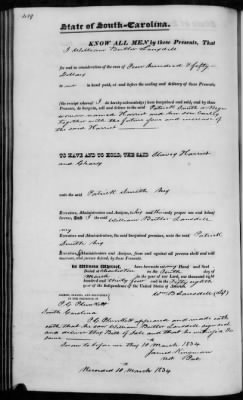 State of South-Carolina.
KNOW ALL MEN by these Presents, That
I William Butler Lansdell
for and in consideration of the sum of Four hundred & fifty
Dollars
to me in hand paid, at and before the sealing and delivery of these Presents,
(the receipt whereof I do hereby acknowledge) have bargained and sold, and by these
Presents, do bargain, sell and deliver to the said Patrick Smith a Negro
woman named Harriet and her son Charly
together with the future issue and increase of
the said Harriet
TO HAVE AND TO HOLD, THE SAID Slaves Harriet
and Charly
unto the said Patrick Smith his
Executors, Administrators and Assigns, to his and their only proper use and behoof
forever. And I the said William Butler Lansdell
my
Executors and Administrators, the said bargained premises, unto the said Patrick
Smith his
Executors, Administrators and Assigns, from and against all persons shall and will
warrant, and forever defend, by these Presents.
In Witness Whereof, I have hereunto set my Hand and Seal
Dated at Charleston on the Tenth day of
March in the year of our Lord, one thousand eight
hundred and thirty four and in the Fifty eighth
year of the Independence of the United States of America.
SIGNED, SEALED, AND DELIVERED
IN THE PRESENCE OF
Wm B Lansdell (LS)
South Carolina
appeared and made
oath that he saw William Butler Lansdell sign seal
and deliver this Bill of Sale and that he witnessed the
same
Sworn to before me this 10 March 1834
James Kingman
Not Pub
Recorded 10 March 1834